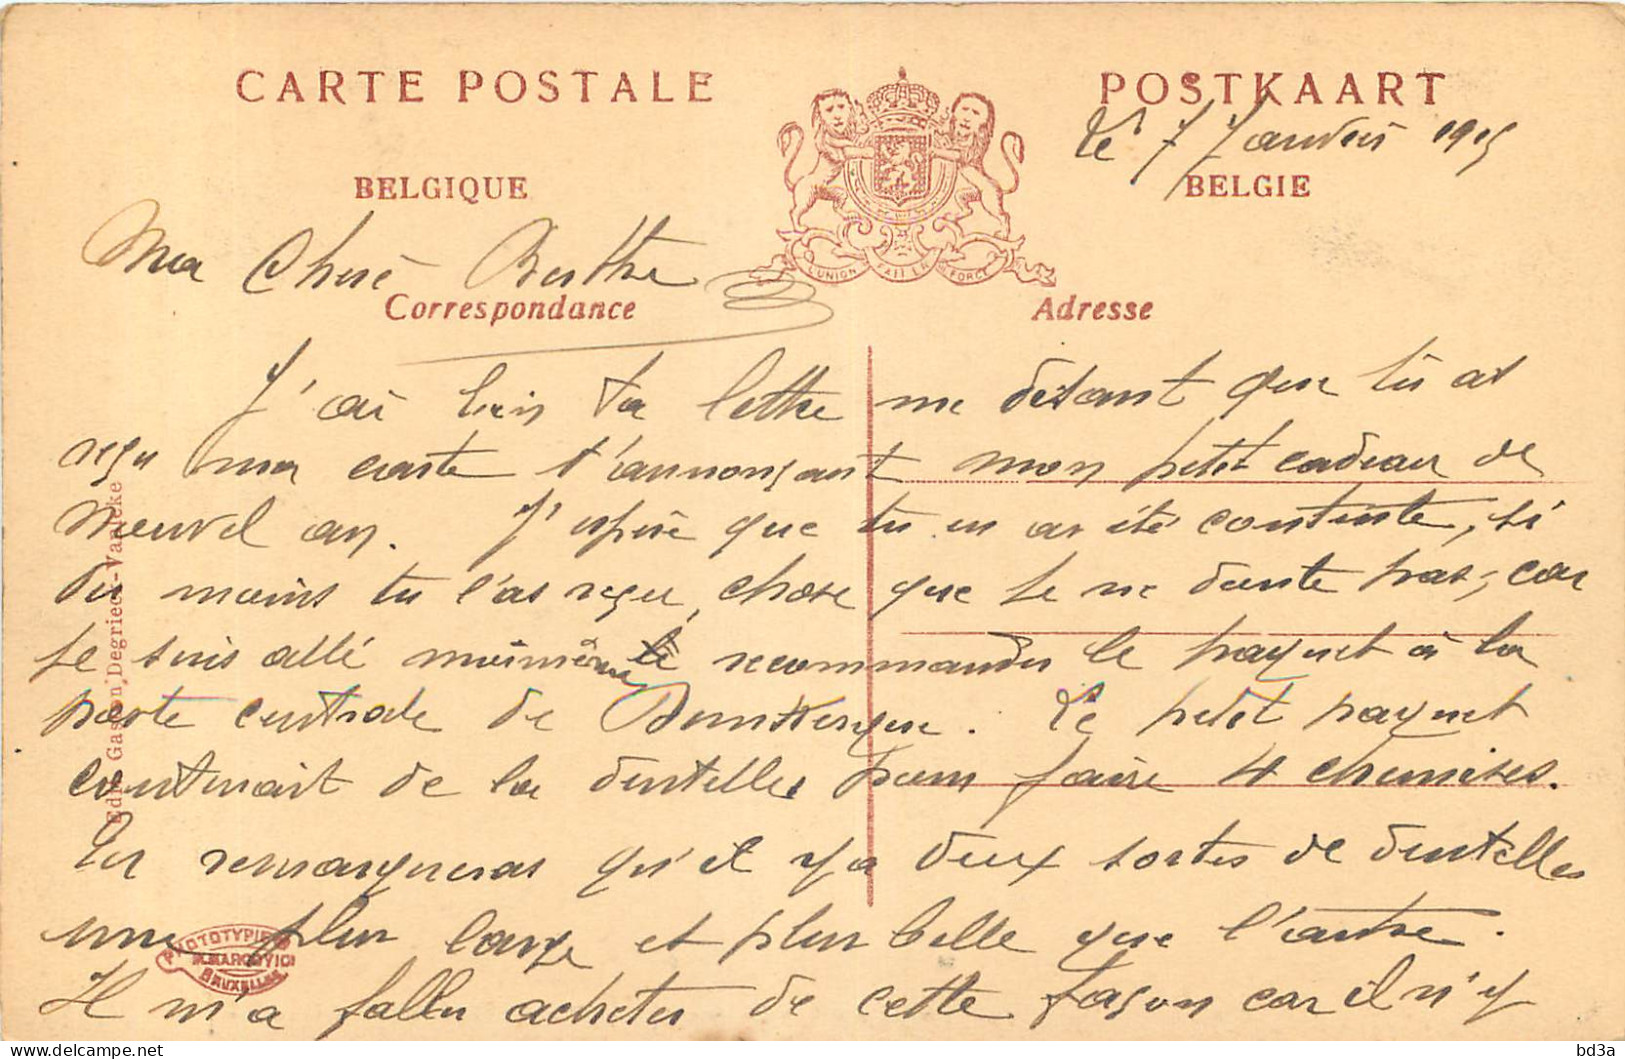 CARTE POSTALE
POSTKAART
Le 7 Janvier 1915
BELGIQUE
BELGIE
L'UNION FAIT LA FORCE
Ma Chère Berthe
Correspondance
Adresse
J'ai bien ta lettre me disant que tu as
reçu ma carte t'annonçant mon petit cadeau de
nouvel an. J'espère que tu en as été contente, si
du moins tu l'as reçu, chose que je ne doute pas, car
je suis allé moimême recommander le paquet à la
poste centrale de Dunkerque. Le petit paquet
contenait de la dentelle pour faire 4 chemises.
Tu remarqueras qu'il y a deux sortes de dentelles
une plus large et plus belle que l'autre.
Il m'a fallu acheter de cette façon car il n'y
Edit. Gaston Degrieck-Vanneke
PHOTOTYPIE
M. MARCOVICI
BRUXELLES
delcampe.net
bd3a